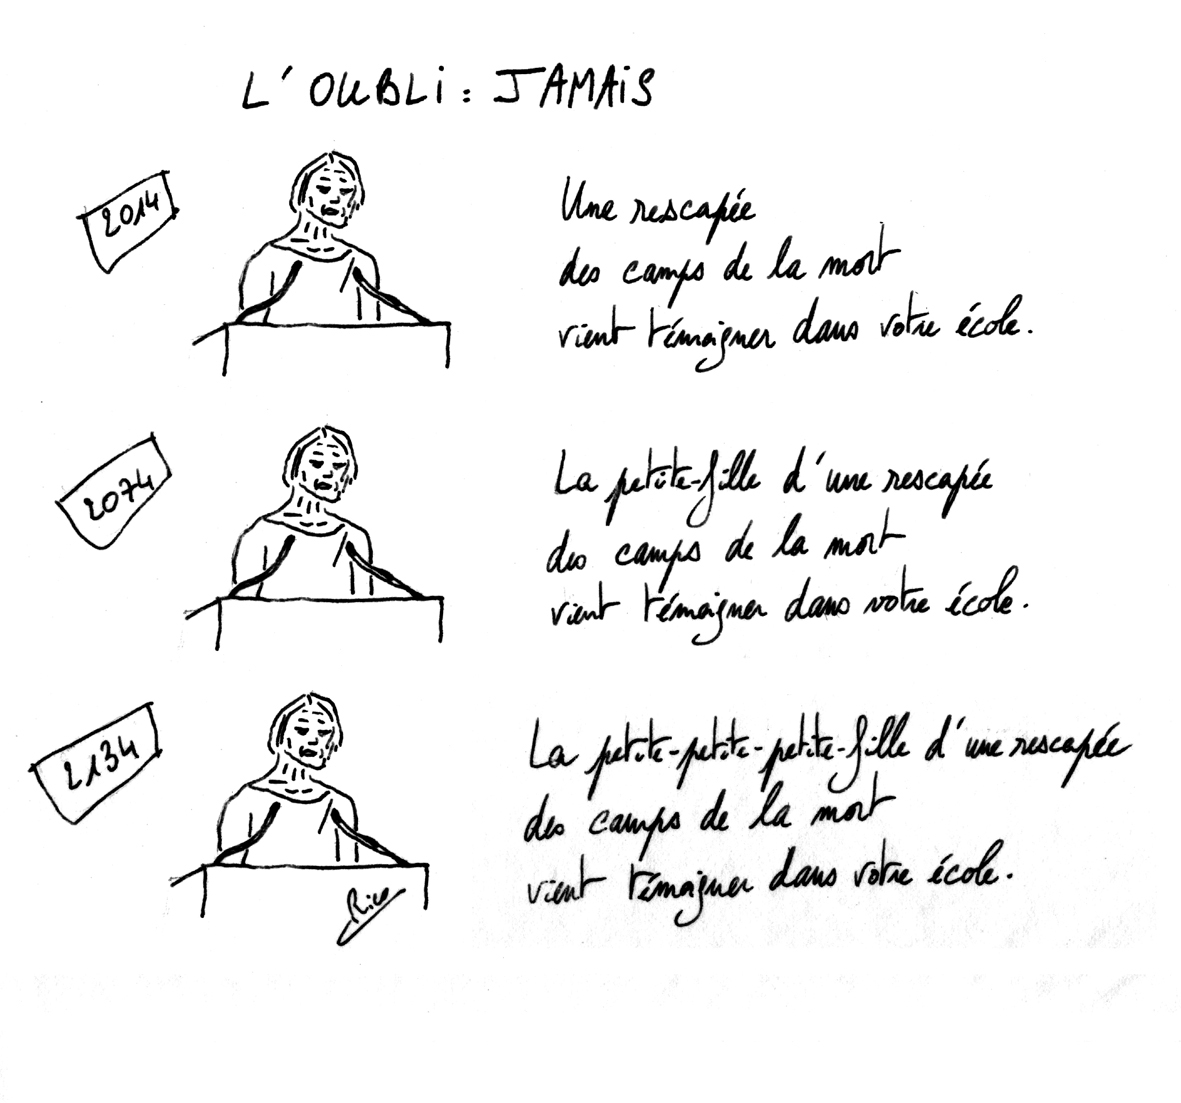 L'OUBLi : JAMAiS
2014
Une rescapée
des camps de la mort
vient témoigner dans votre école.
2074
La petite-fille d'une rescapée
des camps de la mort
vient témoigner dans votre école.
2134
La petite-petite-petite-fille d'une rescapée
des camps de la mort
vient témoigner dans votre école.
Rico